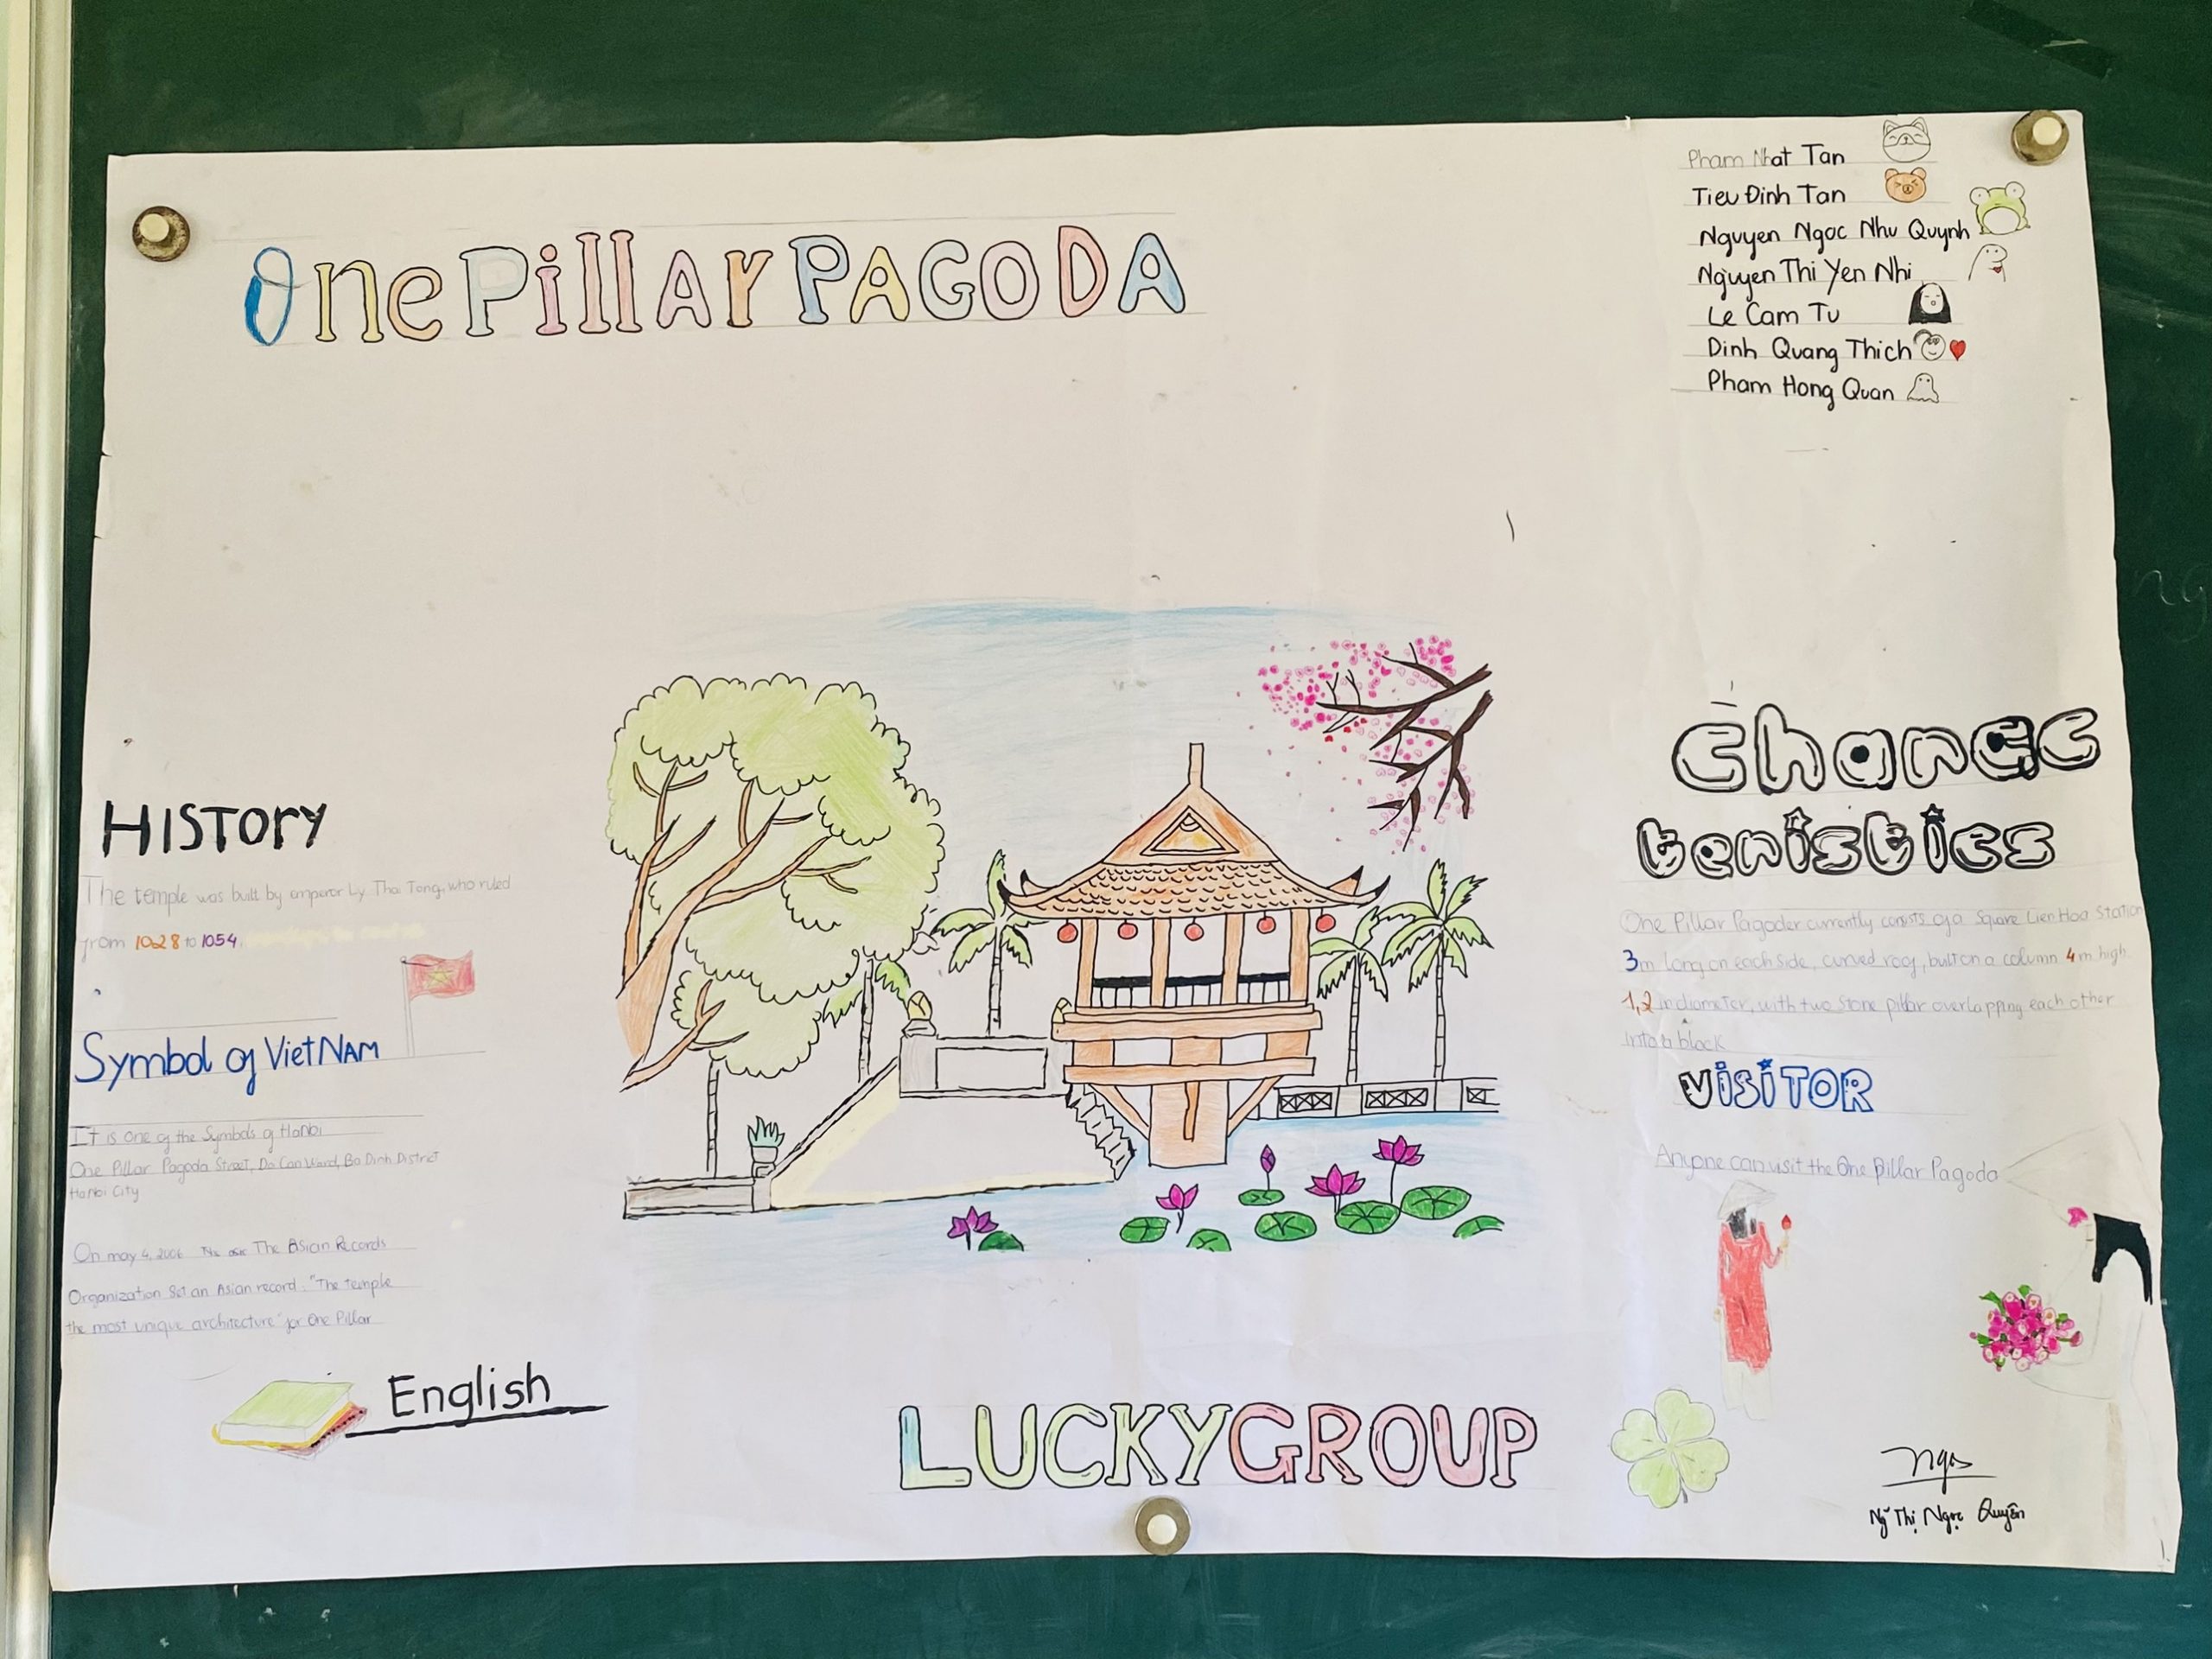 One Pillar PAGODA
Pham Nhat Tan
Tieu Đinh Tan
Nguyen Ngoc Nhu Quynh
Nguyen Thi Yen Nhi
Le Cam Tu
Dinh Quang Thich
Pham Hong Quan
HISTORY
The temple was built by emperor Ly Thai Tong, who ruled
from 1028 to 1054
Symbol of VietNAM
It is one of the Symbols of HaNoi
One Pillar Pagoda Street, Do Can Ward, Ba Dinh District
HaNoi City
On may 4, 2006 The Asian Records
Organization Set an Asian record: "The temple
the most unique architecture" for One Pillar
English
LUCKY GROUP
Charac
teristics
One Pillar Pagoder currently consists of a Square Lien Hoa Station
3m long on each side, curved roof, built on a column 4m high
1,2 in diameter, with two stone pillar overlapping each other
into a block
VISITOR
Anyone can visit the One Pillar Pagoda
Ngọc
Ng̃ Thị Ngọc Quyên